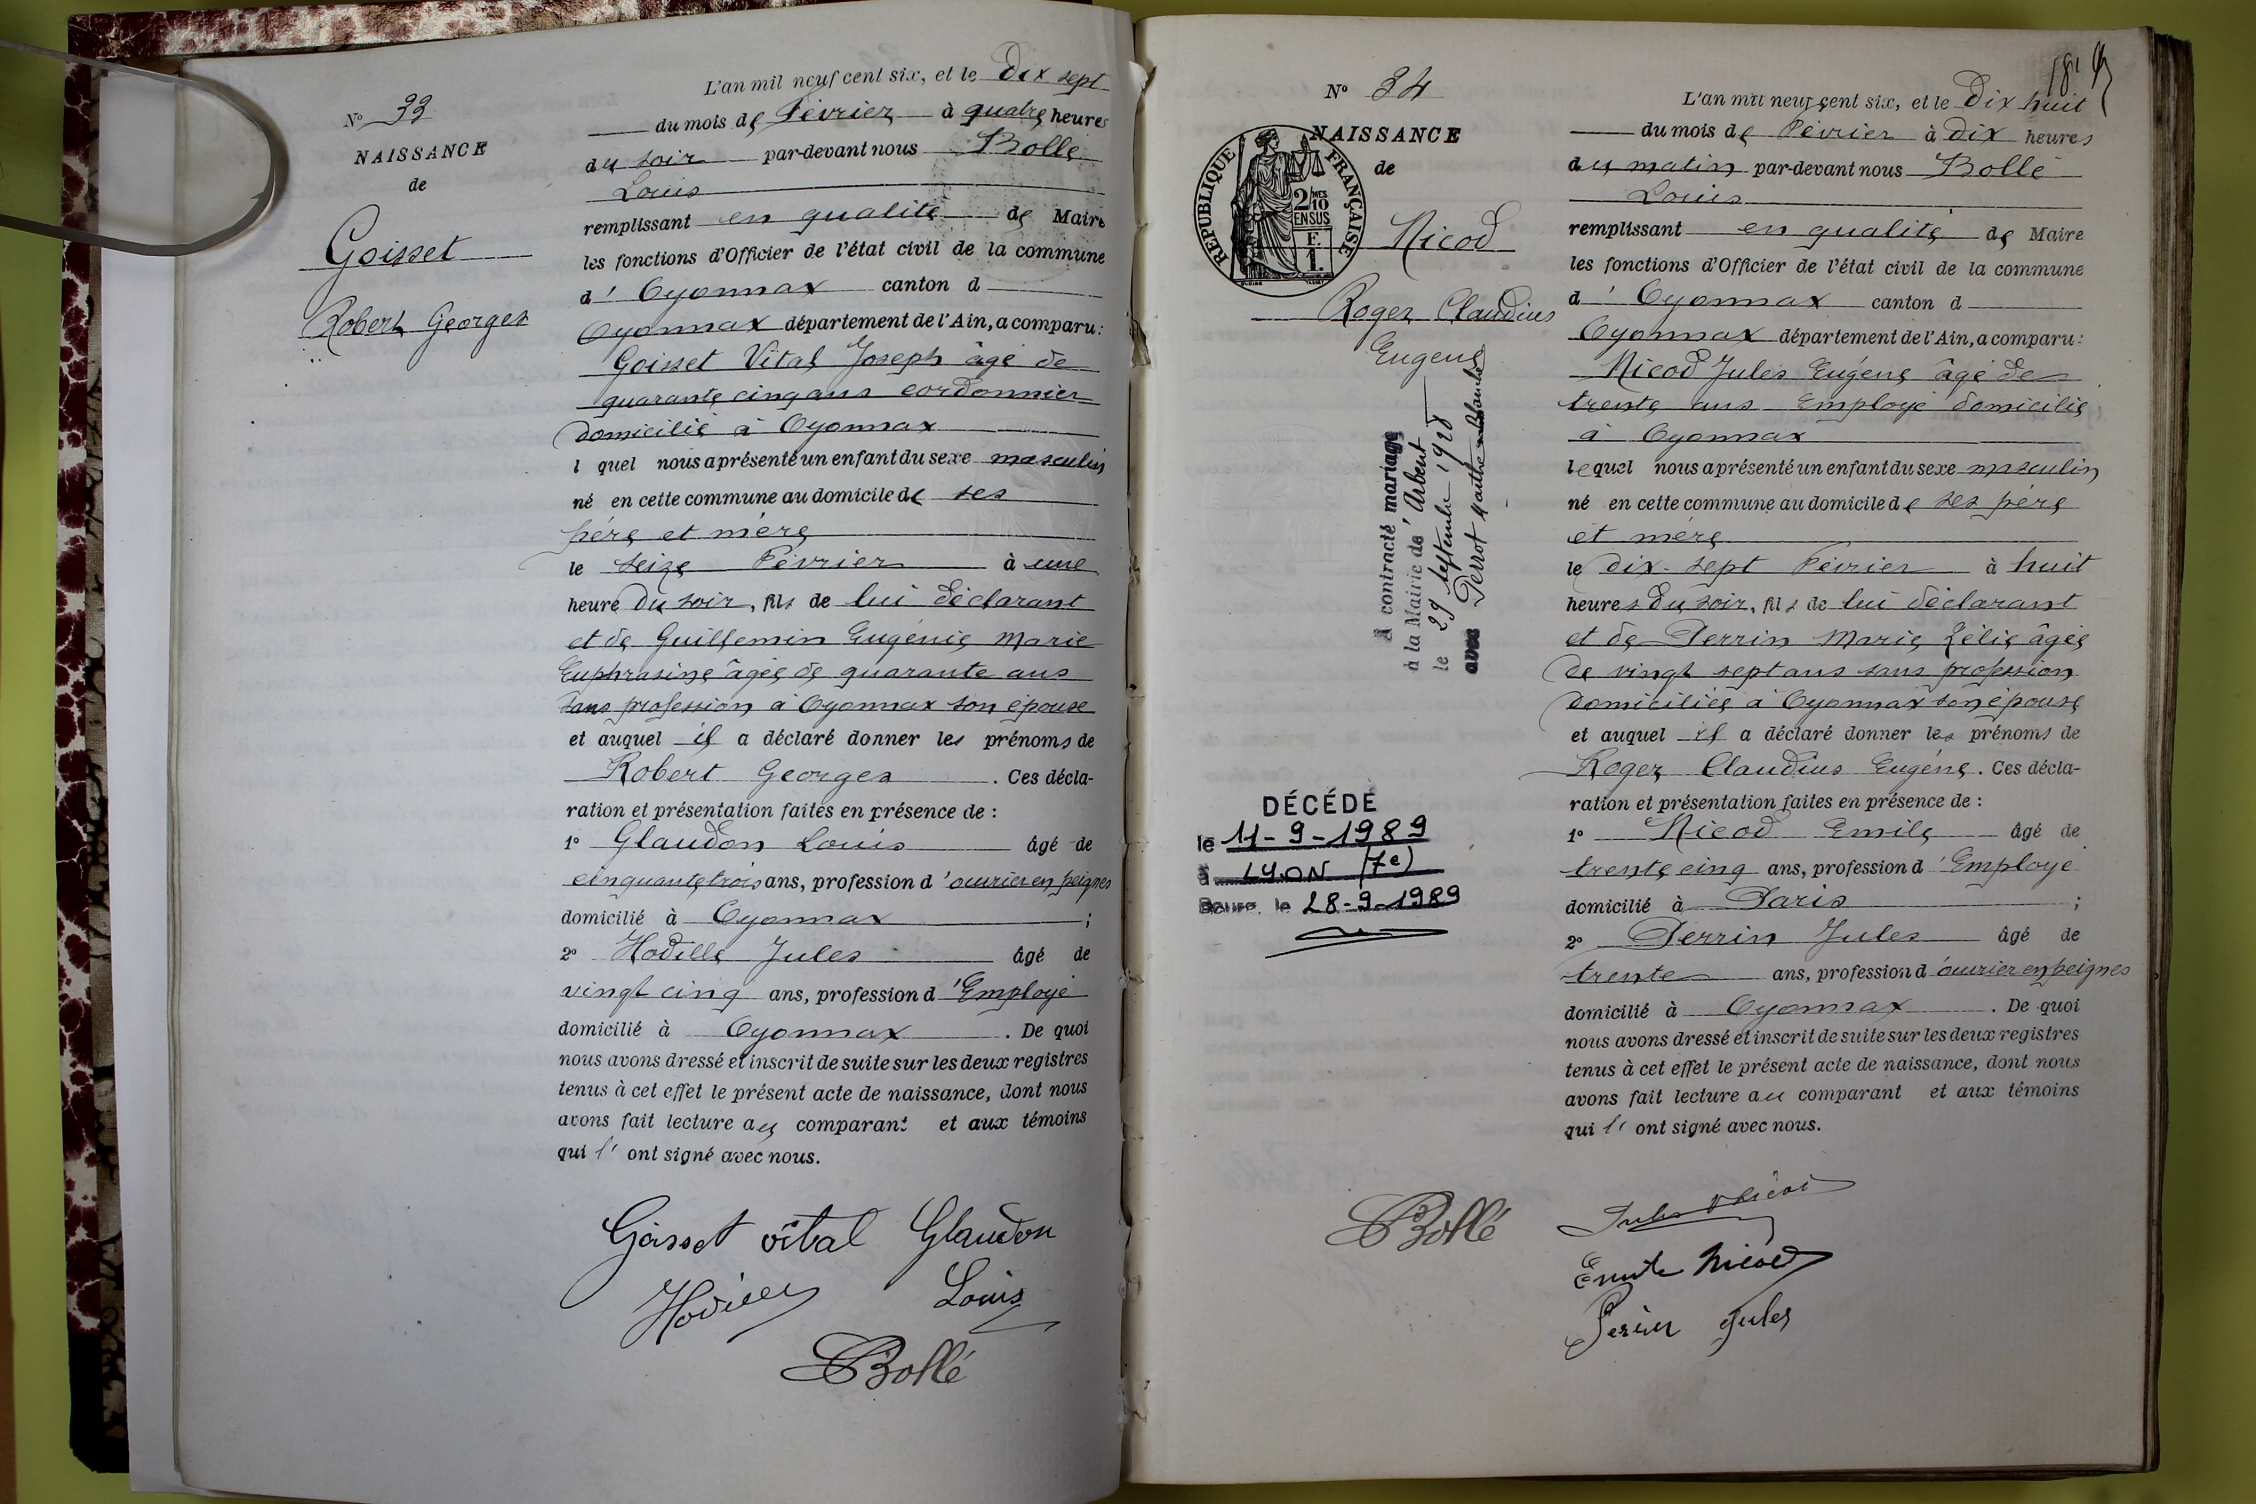 N° 33
NAISSANCE
de
Goisset
Robert Georges
L'an mil neuf cent six, et le Dix sept
du mois de Février à quatre heures
du soir par-devant nous Bollé
Louis
remplissant en qualité de Maire
les fonctions d'Officier de l'état civil de la commune
d' Oyonnax canton d
Oyonnax département de l'Ain, a comparu :
Goisset Vital Joseph âgé de
quarante cinq ans cordonnier
domicilié à Oyonnax
l quel nous a présenté un enfant du sexe masculin
né en cette commune au domicile de ses
père et mère
le seize Février à une
heure du soir, fils de lui déclarant
et de Guillemin Eugénie Marie
Euphrasine âgée de quarante ans
sans profession à Oyonnax son épouse
et auquel il a déclaré donner les prénoms de
Robert Georges. Ces décla-
ration et présentation faites en présence de :
1° Glaudon Louis âgé de
cinquante trois ans, profession d'ouvrier en peignes
domicilié à Oyonnax ;
2° Hodille Jules âgé de
vingt cinq ans, profession d'Employé
domicilié à Oyonnax. De quoi
nous avons dressé et inscrit de suite sur les deux registres
tenus à cet effet le présent acte de naissance, dont nous
avons fait lecture au comparant et aux témoins
qui l' ont signé avec nous.
Goisset vital Glaudon
Louis
Bollé
N° 34
NAISSANCE
de
RÉPUBLIQUE FRANÇAISE
2/10 MES
EN SUS
F.
1.
Nicod
Roger Claudius
Eugène
A contracté mariage
à la Mairie de d'Arbent
le 29 septembre 1928
avec Perrot Marthe Blanche
DÉCÉDÉ
le 11-9-1989
à LYON (7e)
Bourg, le 28-9-1989
L'an mil neuf cent six, et le Dix huit
du mois de Février à dix heures
du matin par-devant nous Bollé
Louis
remplissant en qualité de Maire
les fonctions d'Officier de l'état civil de la commune
d' Oyonnax canton d
Oyonnax département de l'Ain, a comparu :
Nicod Jules Eugène âgé de
trente ans Employé domicilié
à Oyonnax
lequel nous a présenté un enfant du sexe masculin
né en cette commune au domicile de ses père
et mère
le dix-sept Février à huit
heures du soir, fils de lui déclarant
et de Perrin Marie Zélie âgée
de vingt sept ans sans profession
domiciliée à Oyonnax son épouse
et auquel il a déclaré donner les prénoms de
Roger Claudius Eugène. Ces décla-
ration et présentation faites en présence de :
1° Nicod Emile âgé de
trente cinq ans, profession d'Employé
domicilié à Paris ;
2° Perrin Jules âgé de
trente ans, profession d'ouvrier en peignes
domicilié à Oyonnax. De quoi
nous avons dressé et inscrit de suite sur les deux registres
tenus à cet effet le présent acte de naissance, dont nous
avons fait lecture au comparant et aux témoins
qui l' ont signé avec nous.
Bollé
Jules Nicod
Emile Nicod
Perrin Jules